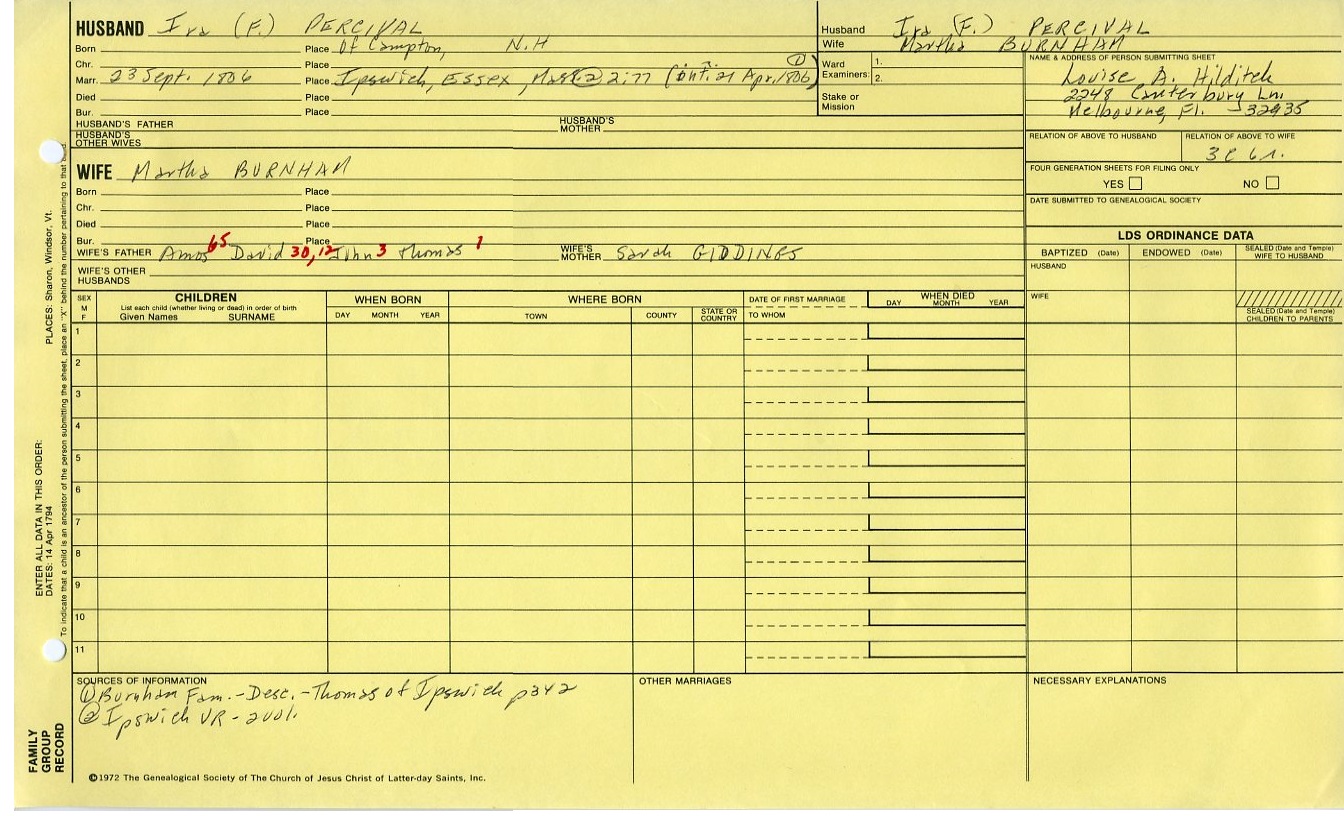 HUSBAND Ira (F.) PERCIVAL
Born Place Of Campton, N.H
Chr. Place
Marr. 23 Sept. 1806 Place Ipswich, Essex, Mass. ② 2:77 (int. 21 Apr. 1806) ①
Died Place
Bur. Place
HUSBAND'S FATHER HUSBAND'S MOTHER
HUSBAND'S OTHER WIVES
Husband Ira (F.) PERCIVAL
Wife Martha BURNHAM
Ward Examiners: 1.
2.
Stake or Mission
NAME & ADDRESS OF PERSON SUBMITTING SHEET
Louise A. Hilditch
2248 Canterbury Ln.
Melbourne, Fl. - 32935
RELATION OF ABOVE TO HUSBAND RELATION OF ABOVE TO WIFE
FOUR GENERATION SHEETS FOR FILING ONLY
YES NO
DATE SUBMITTED TO GENEALOGICAL SOCIETY
WIFE Martha BURNHAM
Born Place
Chr. Place
Died Place
Bur. Place
WIFE'S FATHER Amos 65 David 30,12 John 3 Thomas 1 WIFE'S MOTHER Sarah GIDDINGS
WIFE'S OTHER HUSBANDS
LDS ORDINANCE DATA
BAPTIZED (Date) ENDOWED (Date) SEALED (Date and Temple) WIFE TO HUSBAND
HUSBAND
WIFE
SEALED (Date and Temple) CHILDREN TO PARENTS
SEX M F CHILDREN WHEN BORN WHERE BORN DATE OF FIRST MARRIAGE WHEN DIED
List each child (whether living or dead) in order of birth
Given Names SURNAME DAY MONTH YEAR TOWN COUNTY STATE OR COUNTRY TO WHOM DAY MONTH YEAR
1
2
3
4
5
6
7
8
9
10
11
SOURCES OF INFORMATION
① Burnham Fam. - Desc. - Thomas of Ipswich p342
② Ipswich VR - 2 vol.
OTHER MARRIAGES
NECESSARY EXPLANATIONS
©1972 The Genealogical Society of The Church of Jesus Christ of Latter-day Saints, Inc.
FAMILY GROUP RECORD
ENTER ALL DATA IN THIS ORDER:
DATES: 14 Apr 1794
PLACES: Sharon, Windsor, Vt.
To indicate that a child is an ancestor of the person submitting the sheet, place an "X" behind the number pertaining to that